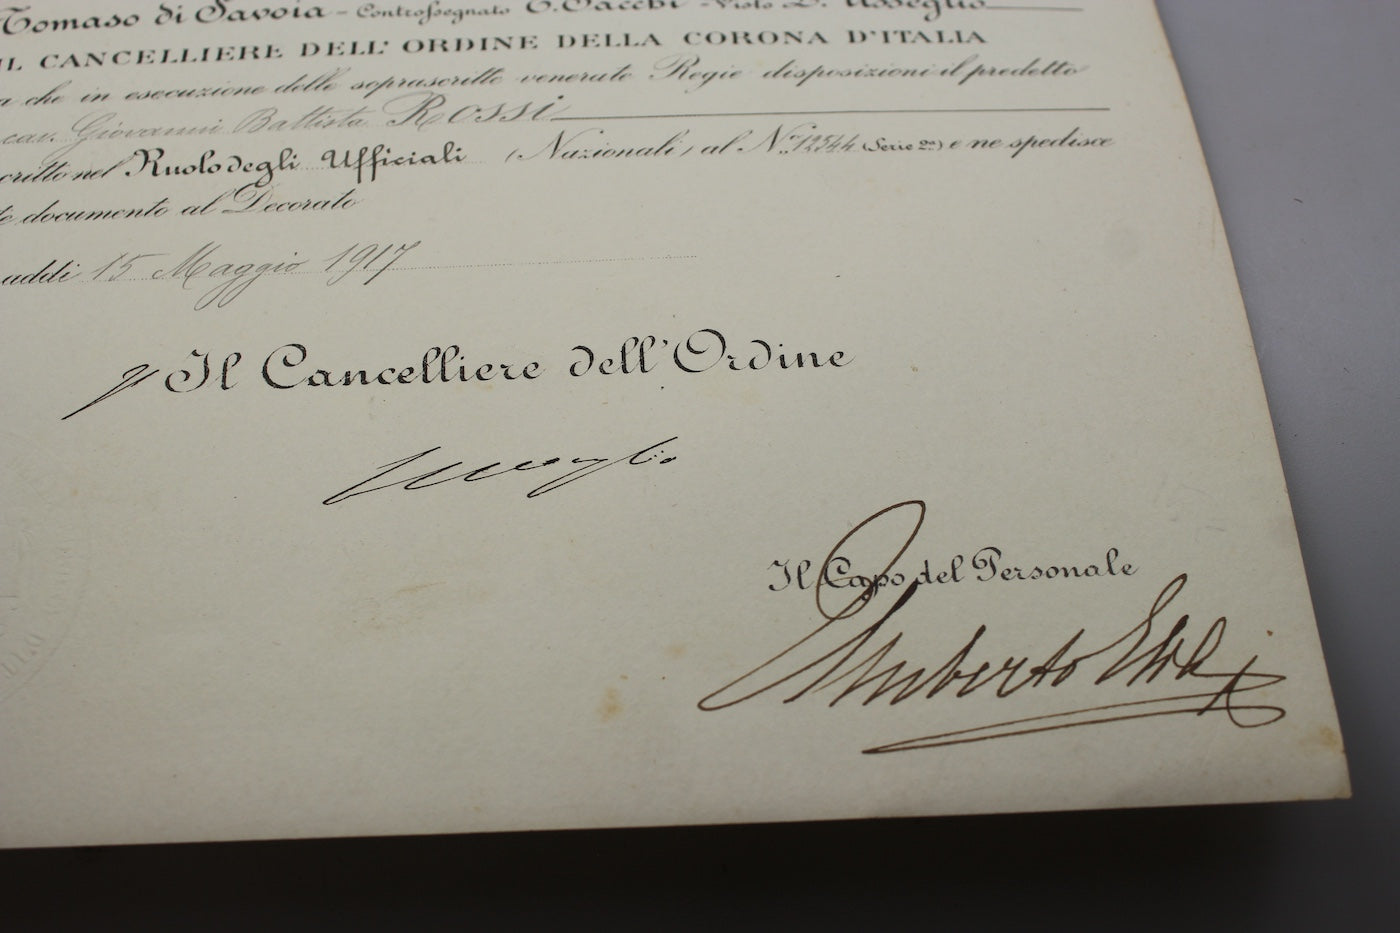 Tomaso di Savoia - Controssegnato C. Sacchi - Visto
IL CANCELLIERE DELL' ORDINE DELLA CORONA D'ITALIA
a che in esecuzione delle soprascritte venerate Regie disposizioni il predetto
cav. Giovanni Battista ROSSI
critto nel Ruolo degli Ufficiali (Nazionali) al N.º 12544 (Serie 2ª) e ne spedisce
te documento al Decorato
addì 15 Maggio 1917
Il Cancelliere dell'Ordine
Il Capo del Personale
Umberto